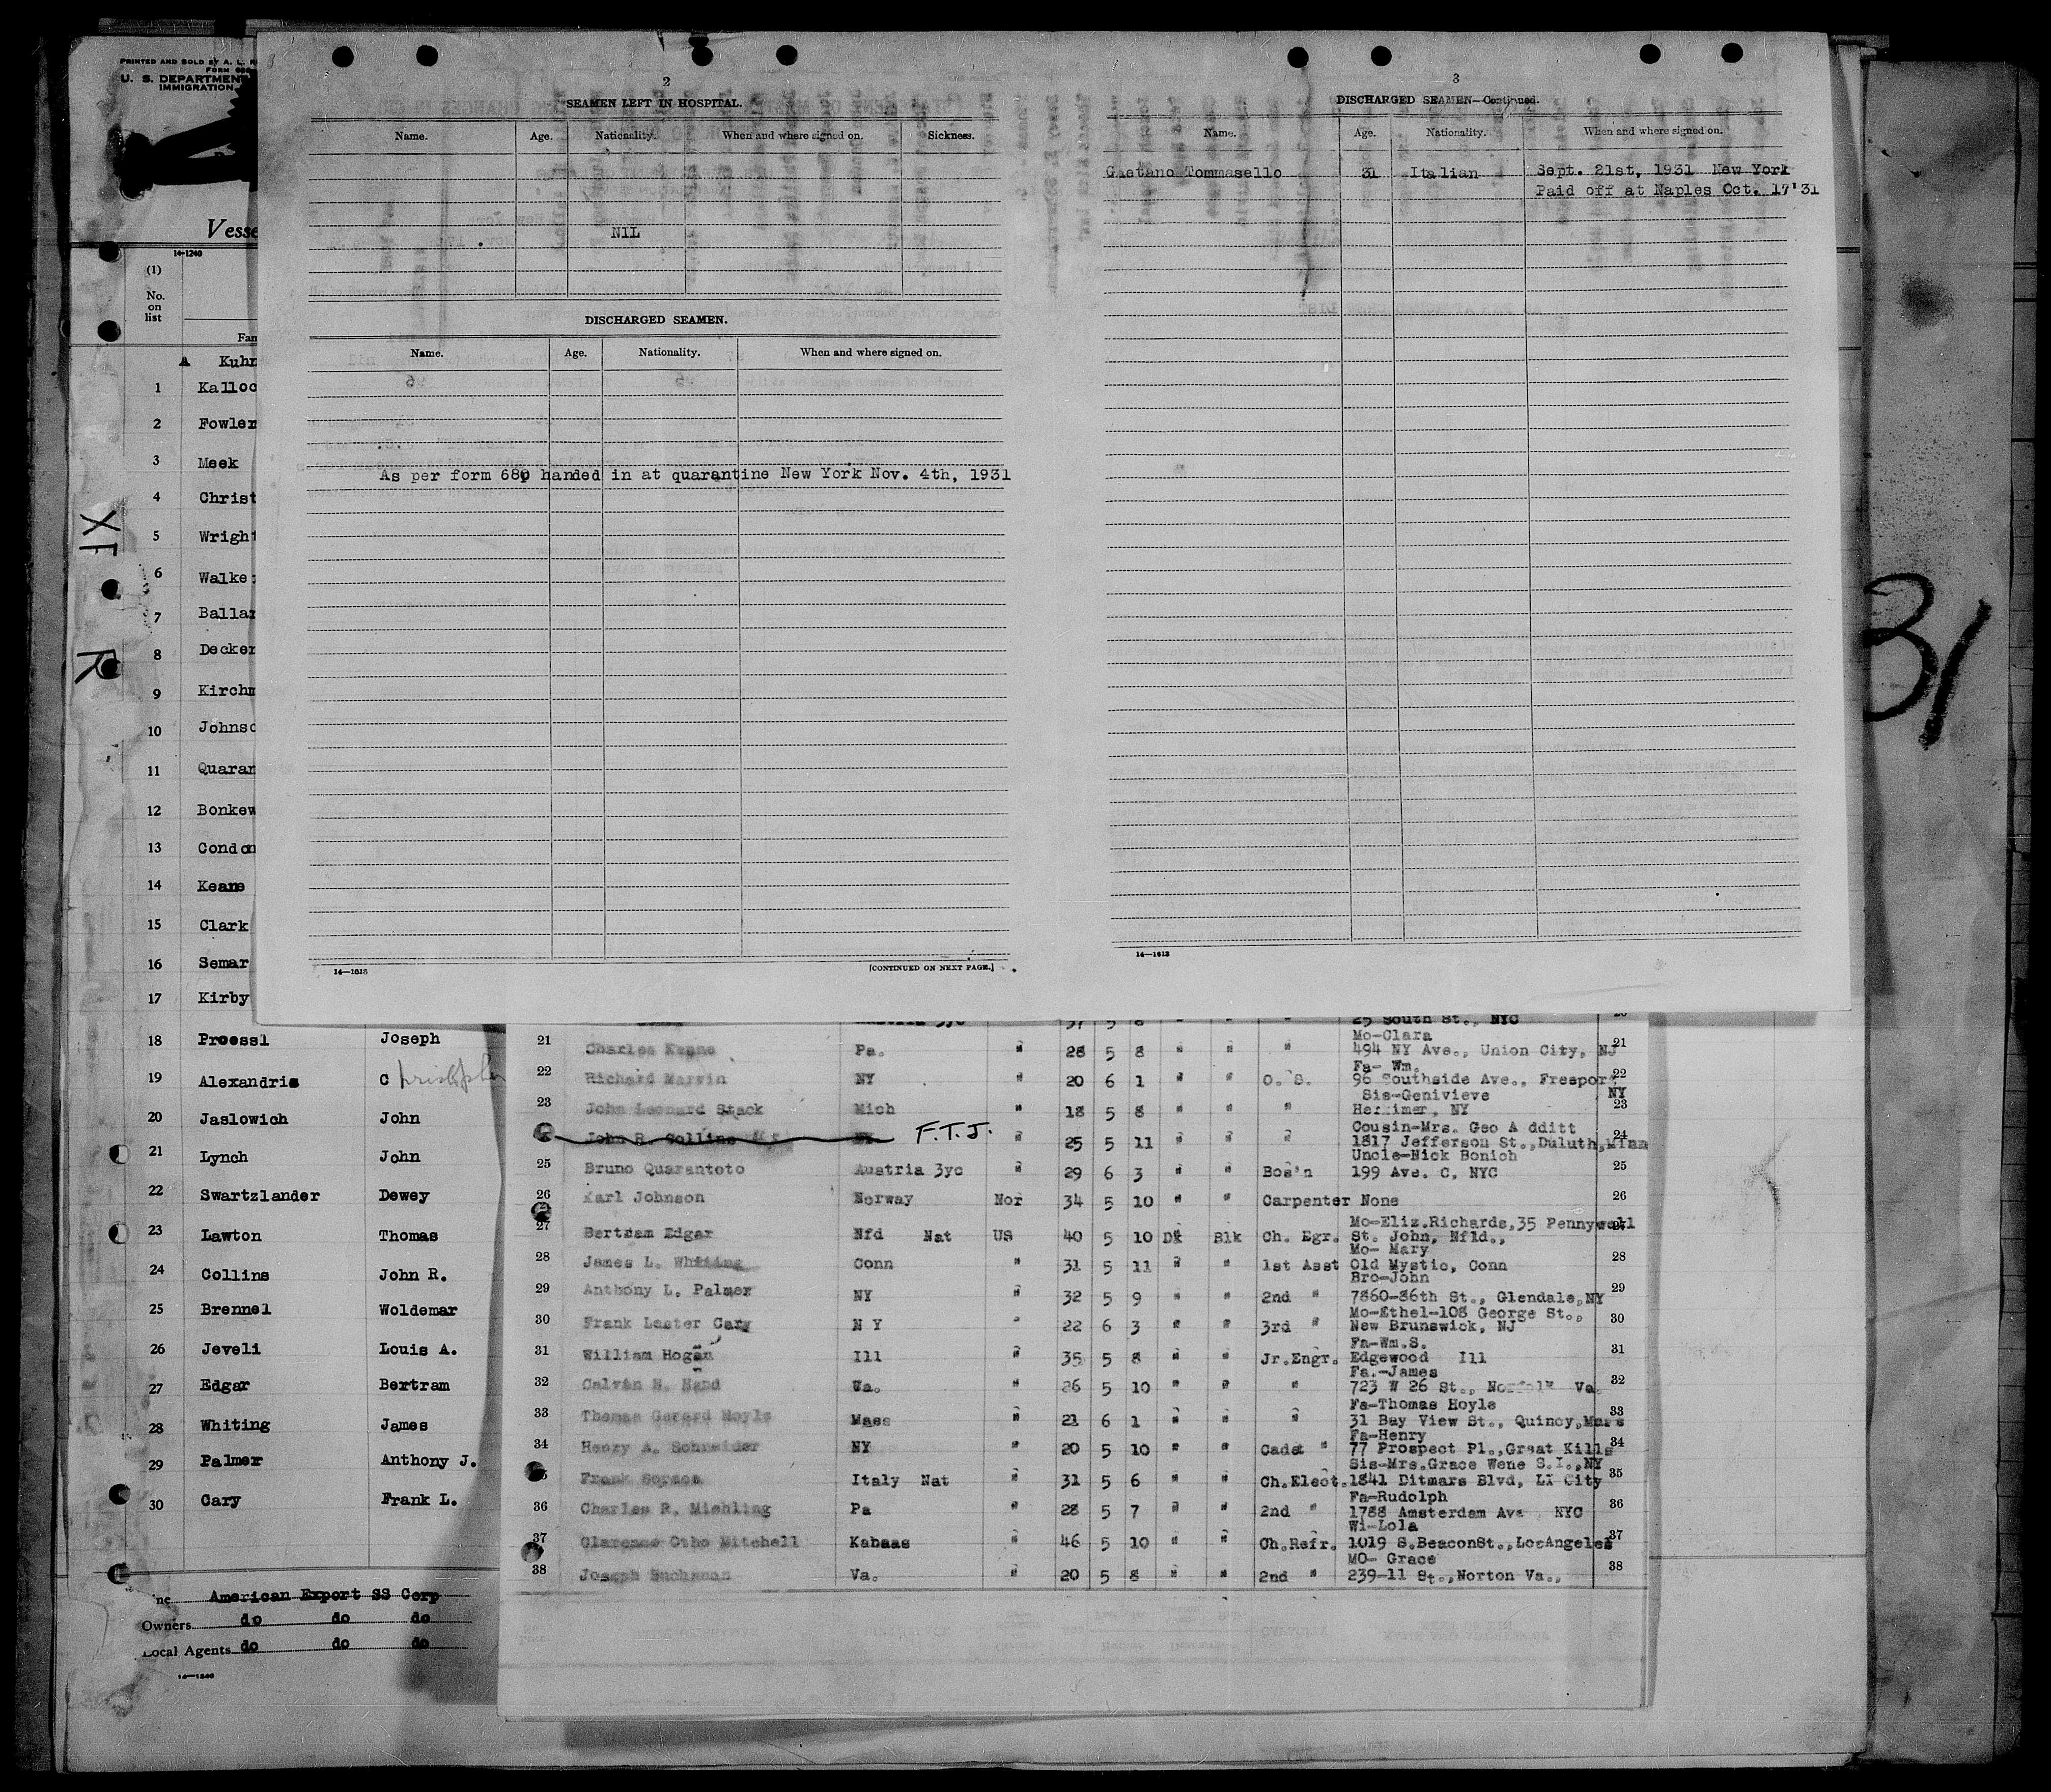 PRINTED AND SOLD BY A. L.
FORM 680
U. S. DEPARTMENT
IMMIGRATION
Vesse
14-1240
(1)
No.
on
list
Fam
A Kuhn
1 Kalloc
2 Fowler
3 Meek
4 Christ
5 Wright
6 Walker
7 Ballar
8 Decker
9 Kirchm
10 Johnso
11 Quaran
12 Bonkew
13 Condon
14 Keane
15 Clark
16 Semar
17 Kirby
18 Proessl Joseph
19 Alexandris Christopher
20 Jaslowich John
21 Lynch John
22 Swartzlander Dewey
23 Lawton Thomas
24 Collins John R.
25 Brennel Woldemar
26 Jeveli Louis A.
27 Edgar Bertram
28 Whiting James
29 Palmer Anthony J.
30 Cary Frank L.
ne American Export SS Corp
Owners do do do
Local Agents do do do
14-1240
XF
R
2
SEAMEN LEFT IN HOSPITAL.
Name. Age. Nationality. When and where signed on. Sickness.
NIL
DISCHARGED SEAMEN.
Name. Age. Nationality. When and where signed on.
As per form 680 handed in at quarantine New York Nov. 4th, 1931
14-1613
[CONTINUED ON NEXT PAGE.]
3
DISCHARGED SEAMEN—Continued.
Name. Age. Nationality. When and where signed on.
Gaetano Tommasello 31 Italian Sept. 21st, 1931 New York
Paid off at Naples Oct. 17'31
14-1613
31
37 5 8 " " " 25 South St., NYC
Mo-Clara
21 Charles Keane Pa. " 28 5 8 " " " 494 NY Ave., Union City, NJ 21
Fa- Wm.
22 Richard Marvin NY " 20 6 1 " " O. S. 96 Southside Ave., Freeport 22
Sis-Genivieve NY
23 John Leonard Stack Mich " 18 5 8 " " " Herkimer, NY 23
Cousin-Mrs. Geo A dditt
John R. Collins NY F.T.J. " 25 5 11 " " " 1817 Jefferson St., Duluth, Minn 24
Uncle-Nick Bonich
25 Bruno Quarantoto Austria 3yc " 29 6 3 " " Bos'n 199 Ave. C, NYC 25
26 Karl Johnson Norway Nor 34 5 10 " " Carpenter None 26
Mo-Eliz.Richards,35 Pennywell
27 Bertram Edgar Nfd Nat US 40 5 10 Dk Blk Ch. Egr. St. John, Nfld., 27
Mo- Mary
28 James L. Whiting Conn " 31 5 11 " " 1st Asst Old Mystic, Conn 28
Bro-John
29 Anthony L. Palmer NY " 32 5 9 " " 2nd " 7860-86th St., Glendale,NY 29
Mo-Ethel-108 George St.,
30 Frank Lester Cary N Y " 22 6 3 " " 3rd " New Brunswick, NJ 30
Fa-Wm.S.
31 William Hogan Ill " 35 5 8 " " Jr.Engr. Edgewood Ill 31
Fa.-James
32 Calvin H. Hand Va. " 26 5 10 " " " 723 W 26 St., Norfolk Va. 32
Fa-Thomas Hoyle
33 Thomas Gerard Hoyle Mass " 21 6 1 " " " 31 Bay View St., Quincy,Mass 33
Fa-Henry
34 Henry A. Schneider NY " 20 5 10 " " Cadet " 77 Prospect Pl.,Great Kills 34
Sis-Mrs.Grace Wene S.I.,NY
Frank Italy Nat " 31 5 6 " " Ch.Elect. 1841 Ditmars Blvd, LI City 35
Fa-Rudolph
36 Charles R. Miehling Pa " 28 5 7 " " 2nd " 1788 Amsterdam Ave NYC 36
Wi-Lola
37 Clarence Otho Mitchell Kabaas " 46 5 10 " " Ch.Refr. 1019 S.BeaconSt.,LosAngeles 37
MO- Grace
38 Joseph Buchanan Va. " 20 5 8 " " 2nd " 239-11 St.,Norton Va., 38